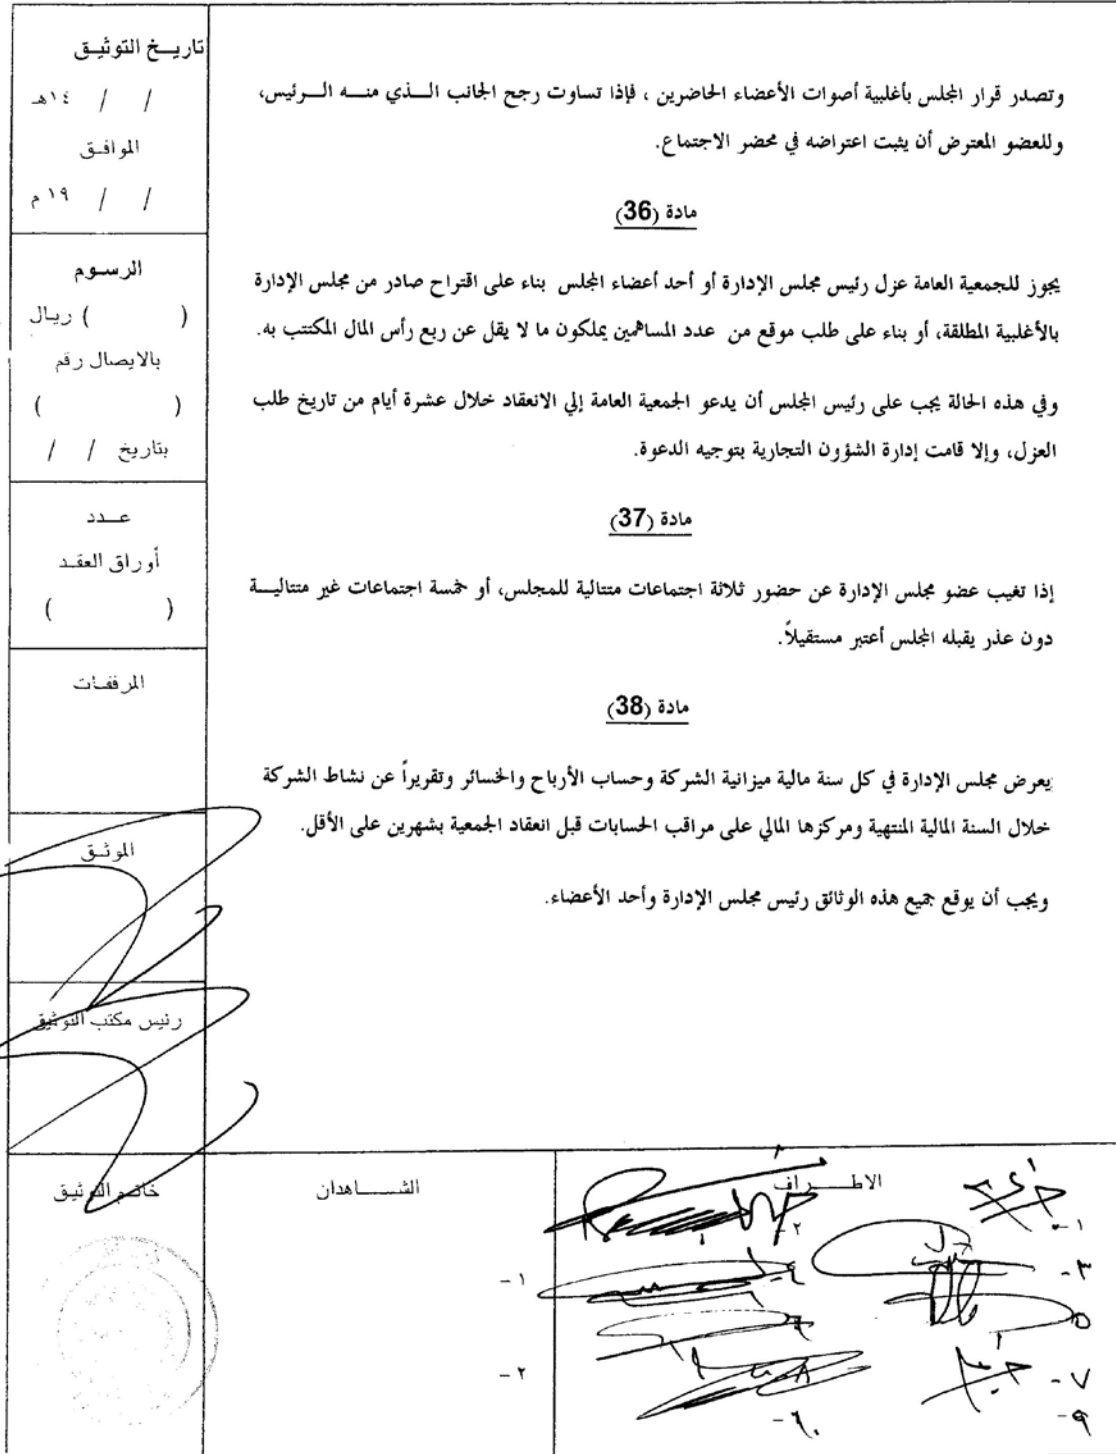 وتصدر قرار المجلس بأغلبية أصوات الأعضاء الحاضرين ، فإذا تساوت رجح الجانب الذي منه الرئيس،
وللعضو المعترض أن يثبت اعتراضه في محضر الاجتماع.
مادة (36)
يجوز للجمعية العامة عزل رئيس مجلس الإدارة أو أحد أعضاء المجلس بناء على اقتراح صادر من مجلس الإدارة
بالأغلبية المطلقة، أو بناء على طلب موقع من عدد المساهمين يملكون ما لا يقل عن ربع رأس المال المكتتب به.
وفي هذه الحالة يجب على رئيس المجلس أن يدعو الجمعية العامة إلي الانعقاد خلال عشرة أيام من تاريخ طلب
العزل، وإلا قامت إدارة الشؤون التجارية بتوجيه الدعوة.
مادة (37)
إذا تغيب عضو مجلس الإدارة عن حضور ثلاثة اجتماعات متتالية للمجلس، أو خمسة اجتماعات غير متتالية
دون عذر يقبله المجلس أعتبر مستقيلاً.
مادة (38)
يعرض مجلس الإدارة في كل سنة مالية ميزانية الشركة وحساب الأرباح والخسائر وتقريراً عن نشاط الشركة
خلال السنة المالية المنتهية ومركزها المالي على مراقب الحسابات قبل انعقاد الجمعية بشهرين على الأقل.
ويجب أن يوقع جميع هذه الوثائق رئيس مجلس الإدارة وأحد الأعضاء.
تاريخ التوثيق
/ / ١٤هـ
الموافق
/ / ١٩ م
الرسوم
( ) ريال
بالايصال رقم
( )
بتاريخ / /
عدد
أوراق العقد
( )
المرفقات
الموثق
رئيس مكتب التوثيق
الاطراف
١-
٢-
٣-
٥
٧-
٨
٩-
١٠-
الشاهدان
١-
٢-
خاتم التوثيق